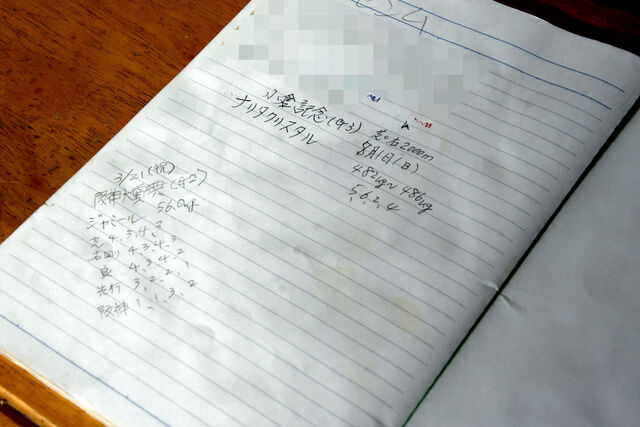 小倉記念(G3) 芝・右2000m
ナリタクリスタル 8月1日(日)
482kg〜486kg
5,6,2,4
3/21(祝)
阪神大賞典(G2)
ジャミール 56.0kg
芝 4.3.4.3
右回り 4.3.4.2
良 4.3.4.2
先行 3.2.2.1
阪神 1.1.3.2